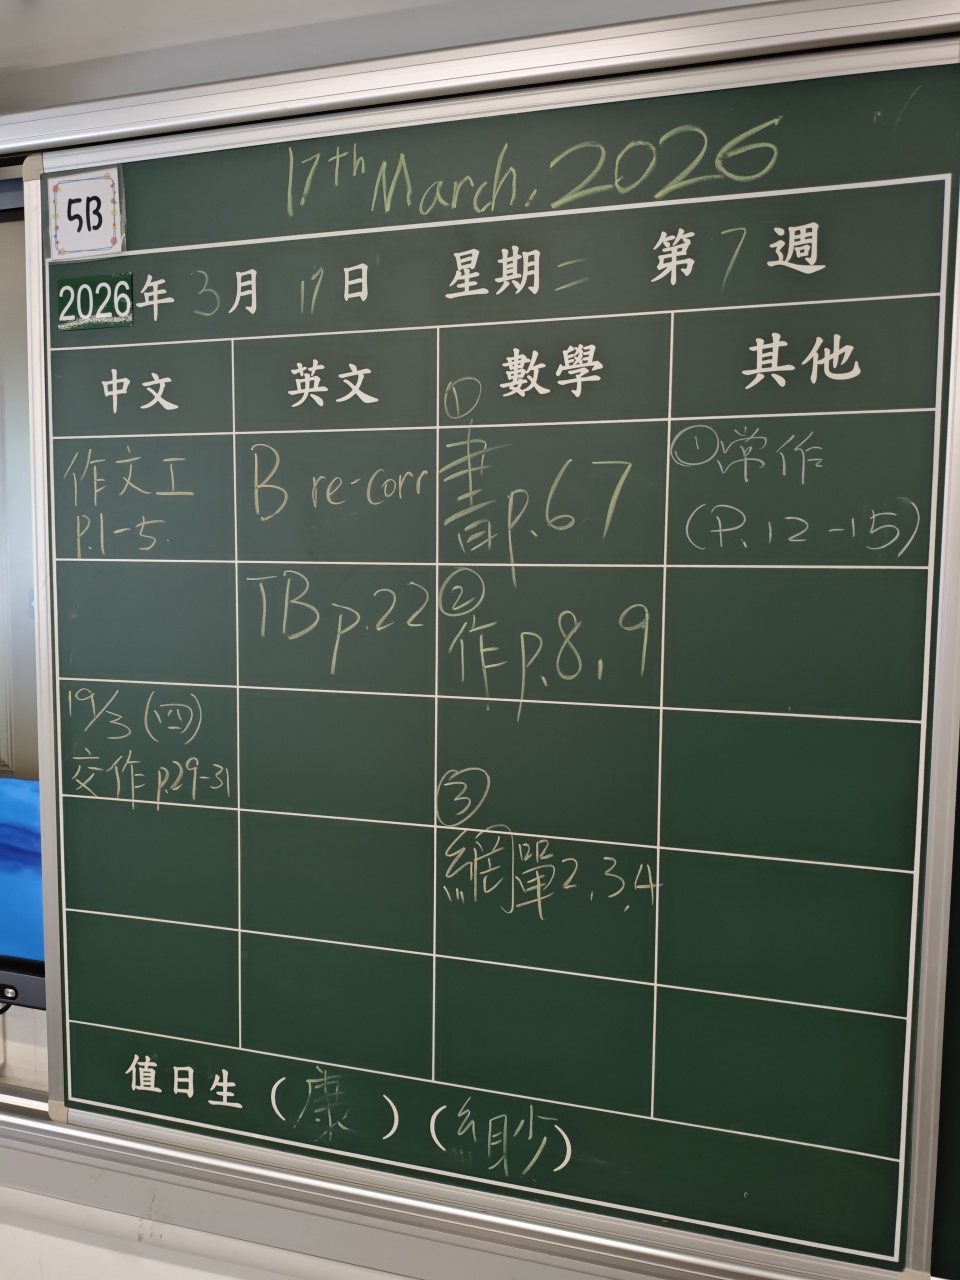 17th March, 2026
5B
2026年 3月 17日 星期二 第7週
中文 英文 數學 其他
作文工
p.1-5.
B re-corr
TB p.22
19/3 (四)
交作 p.29-31
①
書p.67
②
作p.8,9
③
網單2,3,4
①常作
(P.12-15)
值日生 (康) ( )